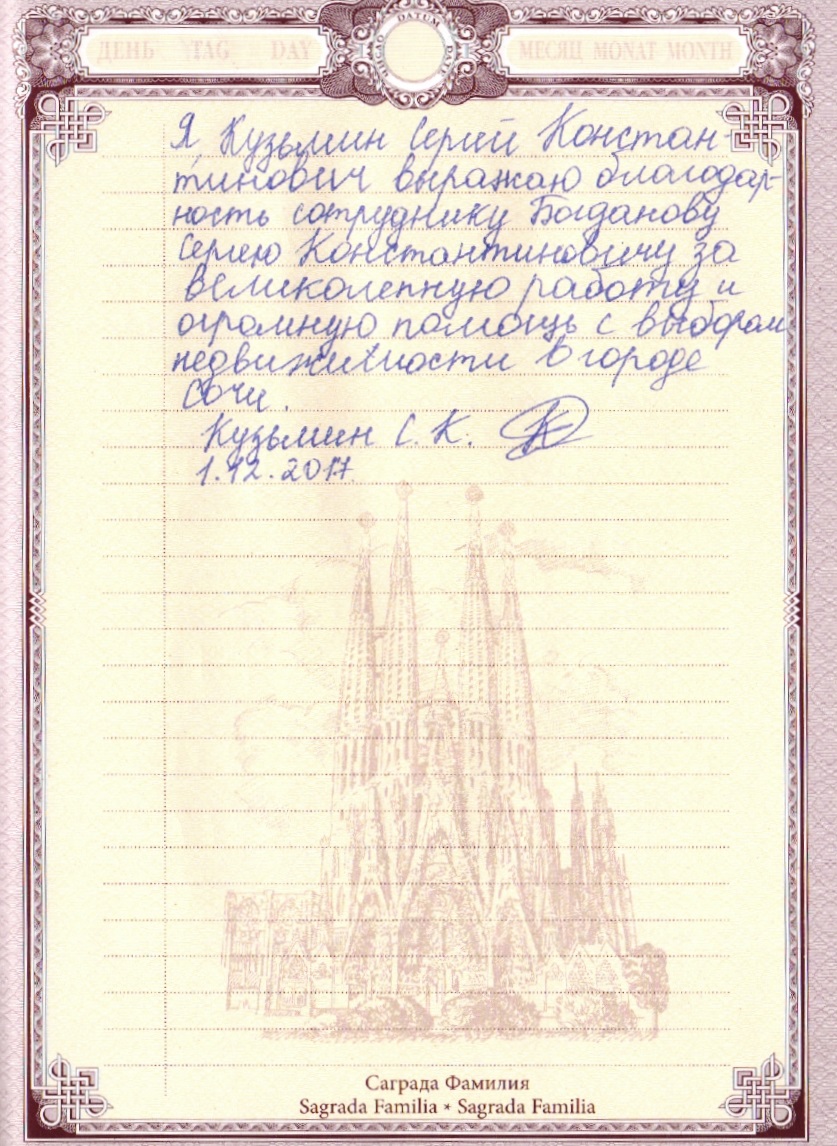 ДЕНЬ TAG DAY
DATUM
МЕСЯЦ MONAT MONTH
Я, Кузьмин Сергей Констан-
тинович выражаю благодар-
ность сотруднику Богданову
Сергею Константиновичу за
великолепную работу и
огромную помощь с выбором
недвижимости в городе
Сочи.
Кузьмин С. К.
1.12.2017
Саграда Фамилия
Sagrada Familia * Sagrada Familia